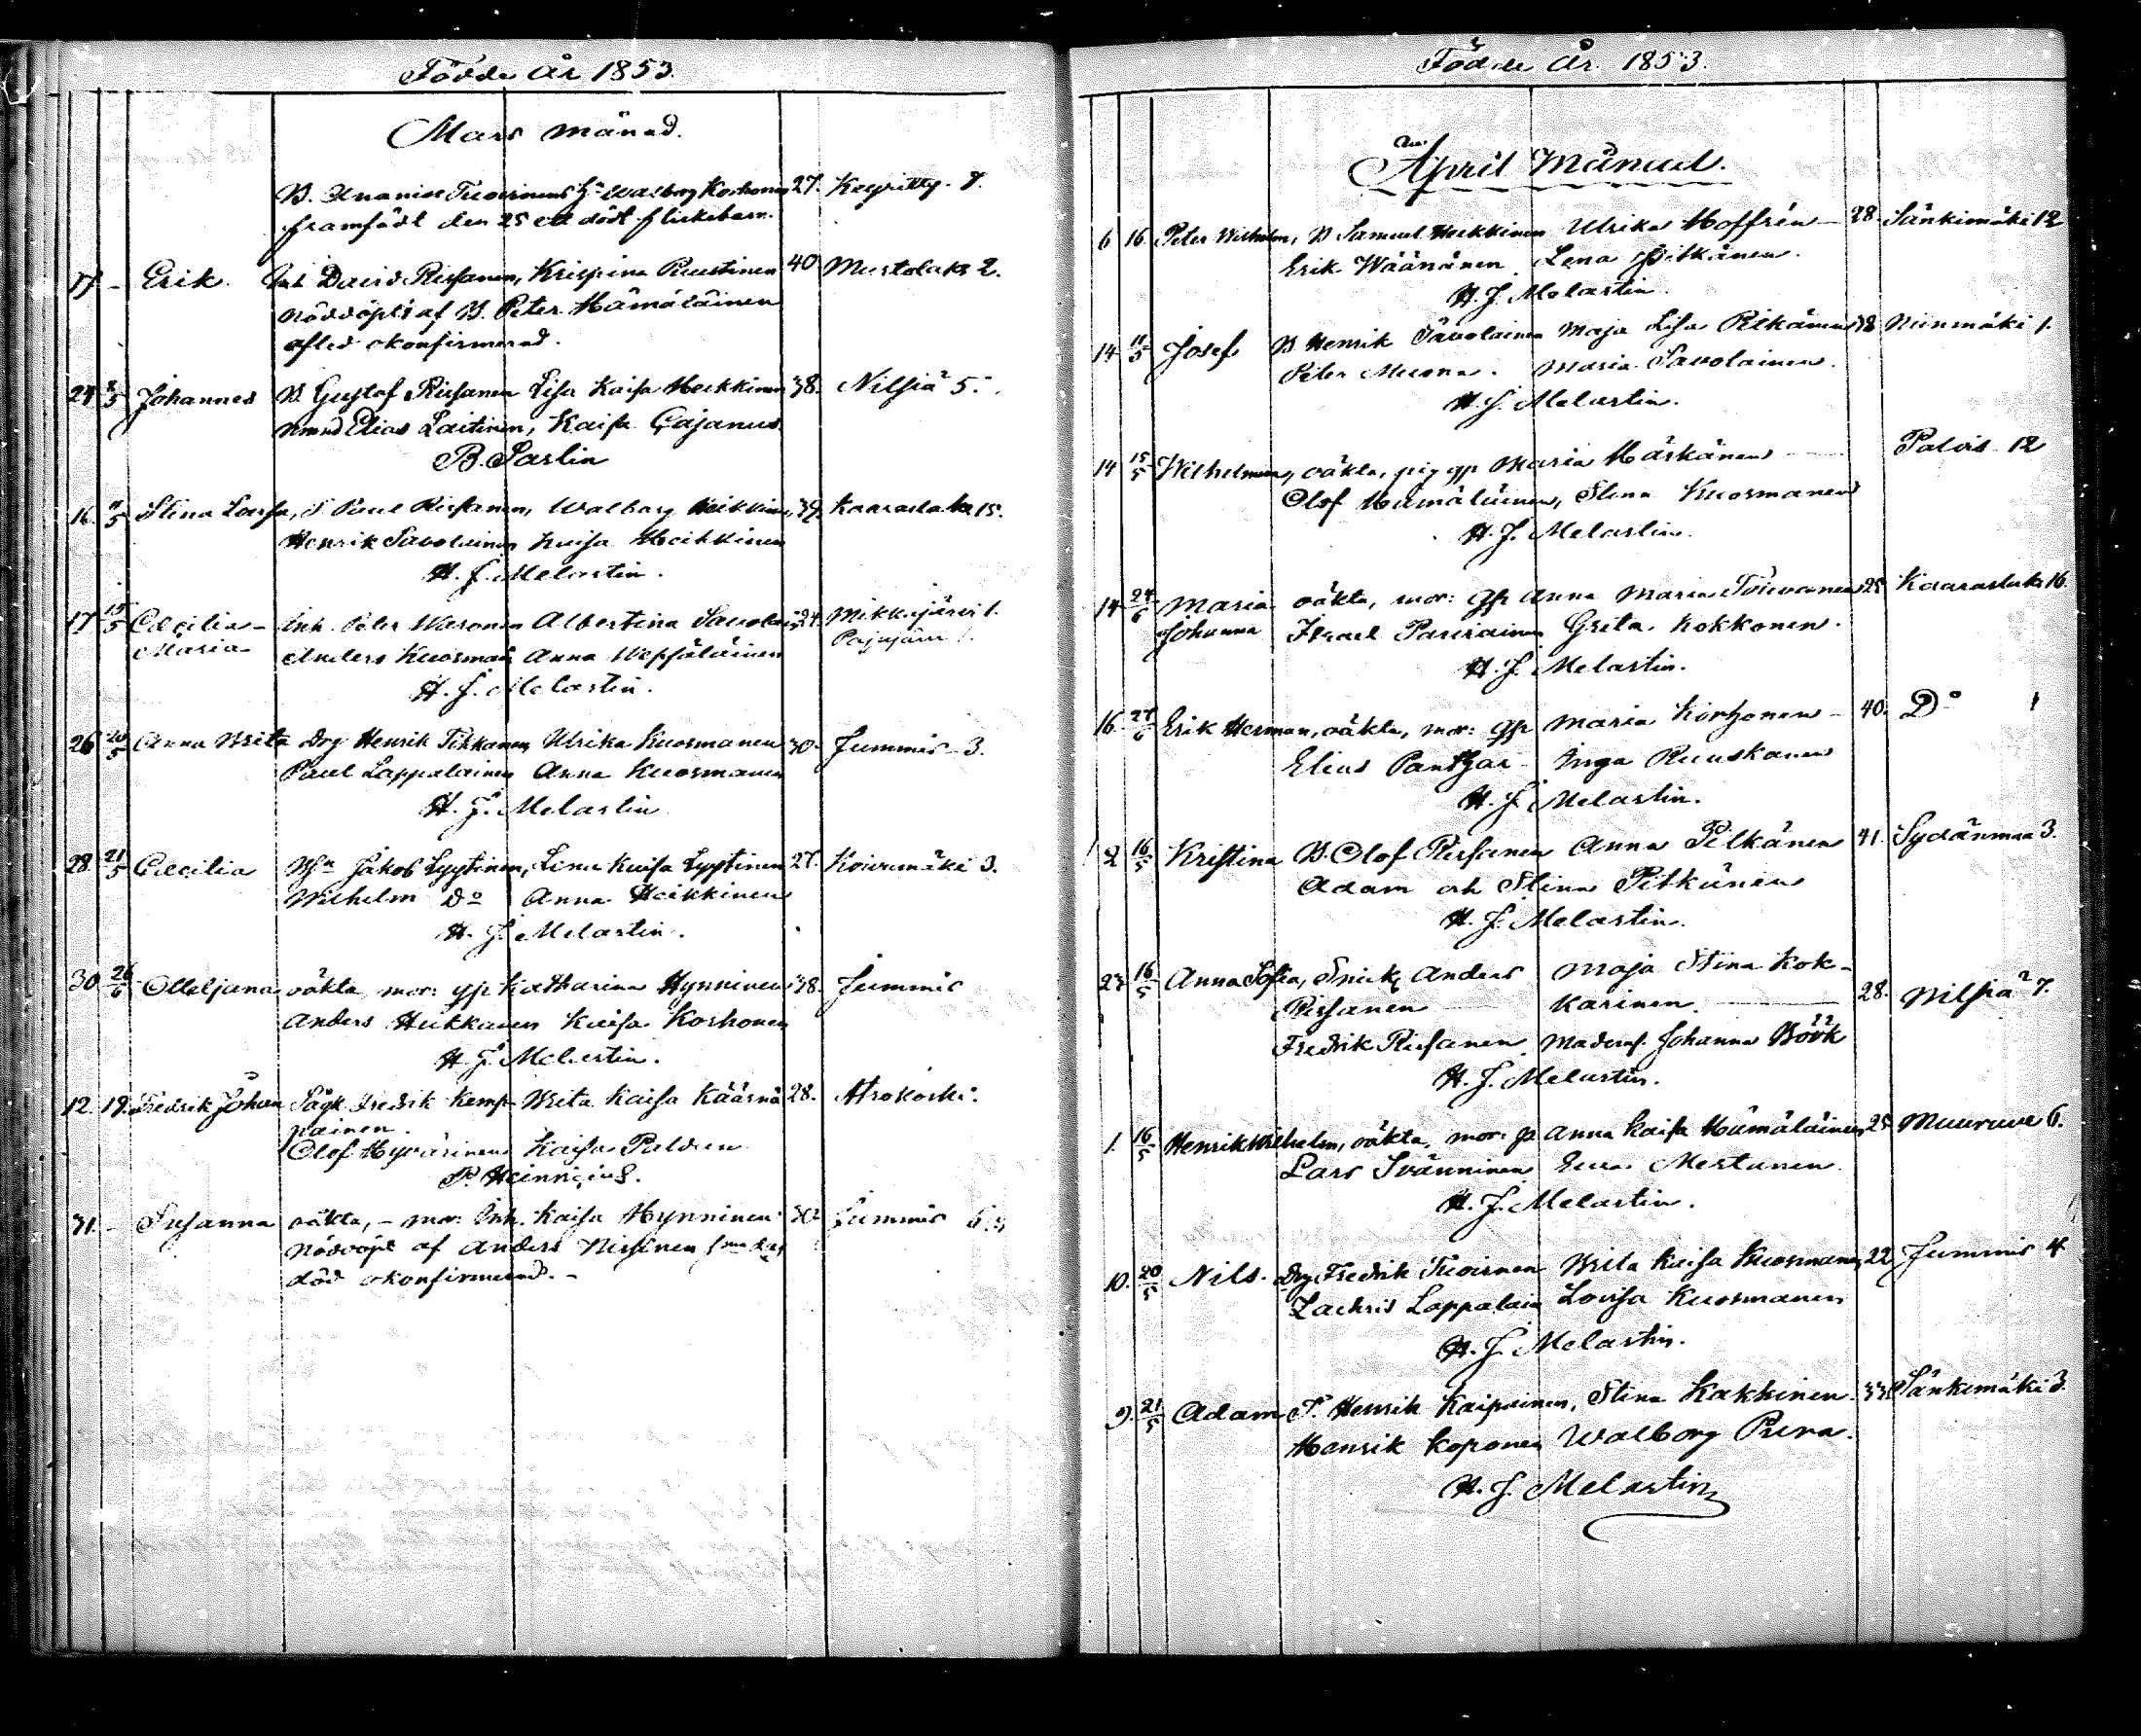 Födde år 1853.
Mars månad.
B. Ananias Tuovinens h: Walborg Korhonen 27. Keyritty 7.
framfödt den 25 ett dödt flickebarn.
17 - Erik. Inh. David Rissanen, Krispina Puustinen 40 Murtolaks 2.
nöddöpt af B. Peter Hämäläinen
afled okonfirmerad.
29 8/5 Johannes B. Gustaf Rissanen Lisa Kaisa Heikkinen 38. Nilsiä 5.
Elias Laitinen, Kaisa Cajanus
B. Sarlin
16. 8/5 Stina Lovisa, T. Paul Rissanen, Walborg Heikkinen 39. Kaaraslaks 15.
Henrik Savolainen Kaisa Heikkinen
H. J. Melartin.
17 15/5 Cecilia Inh. Peter Waronen Albertina Savolain 24. Mikkajärvi 1.
Maria Anders Kuosman Anna Wepsäläinen
H. J. Melartin.
26 20/5 Anna Brita Drg Henrik Tikkanen Ulrika Kuosmanen 30. Jummis 3.
Paul Lappalainen Anna Kuosmanen
H. J. Melartin
28. 21/5 Cecilia Jakob Lyytinen, Lena Kaisa Lyytinen 27. Koivumäki 3.
Wilhelm Do Anna Heikkinen
H. J. Melartin.
30 26/6 oäkta mor: gp Katharina Hynninen 38. Jummis
Anders Kaisa Korhonen
H. J. Melartin.
12. 19. Fredrik Johan Fredrik Kemp- Brita Kaisa Käärnä 28. Atrokoski.
painen.
Olof Hyvärinen Kaisa
31. - Susanna oäkta, - mor: Inh. Kaisa Hynninen Jummis
Nöddöpt af Anders Nissinen
död okonfirmerad. -
Födde År 1853.
April Månad.
6 16. Peter Wilhelm, B Samuel Heikkinen Ulrika Hoffrén 28. Sänkimäki 12
Erik Wäänänen Lena Pitkänen.
H. J. Melartin.
14 11/5 Josef B. Henrik Savolainen Maja Lisa Pitkänen 38 Niinimäki 1.
Peter Muona. Maria Savolainen.
H. J. Melartin.
14 15/5 Wilhelmina, oäkta, pig gp Maria Härkänen Palois 12
Olof Hämäläinen, Stina Kuosmanen
H. J. Melartin.
14 24/6 Maria oäkta, mor: gp Anna Maria Toivanen 25 Kaaraslaks 16.
Johanna Israel Parviainen Greta Kokkonen.
H. J. Melartin.
16. 27/6 Erik Herman, oäkta, mor: gp Maria Korhonen - 40. Do 1
Elias Pantzar Inga Ruuskanen
H. J. Melartin.
2 16/5 Kristina B. Olof Rissanen Anna Pitkänen 41. Sydänmaa 3.
Adam och Stina Pitkänen
H. J. Melartin.
23 16/5 Anna Sofia, Snick Anders Maja Stina Kok-
Rissanen karinen. 28. Nilsiä 7.
Fredrik Rissanen Johanna Böök
H. J. Melartin.
1. 16/5 Henrik Wilhelm, oäkta, mor: gp Anna Kaisa Hämäläinen 25 Muuruve 6.
Lars Svänninen Eva Mertanen.
H. J. Melartin.
10. 20/5 Nils. Drg Fredrik Tuovinen Brita Kaisa Kuosmanen 22 Jummis 4
Zachris Lappalain Lovisa Kuosmanen
H. J. Melartin.
9. 21/5 Adam T. Henrik Kaipainen, Stina Kakkinen. 33 Sänkimäki 3.
Henrik Koponen Walborg Purra.
H. J. Melartin